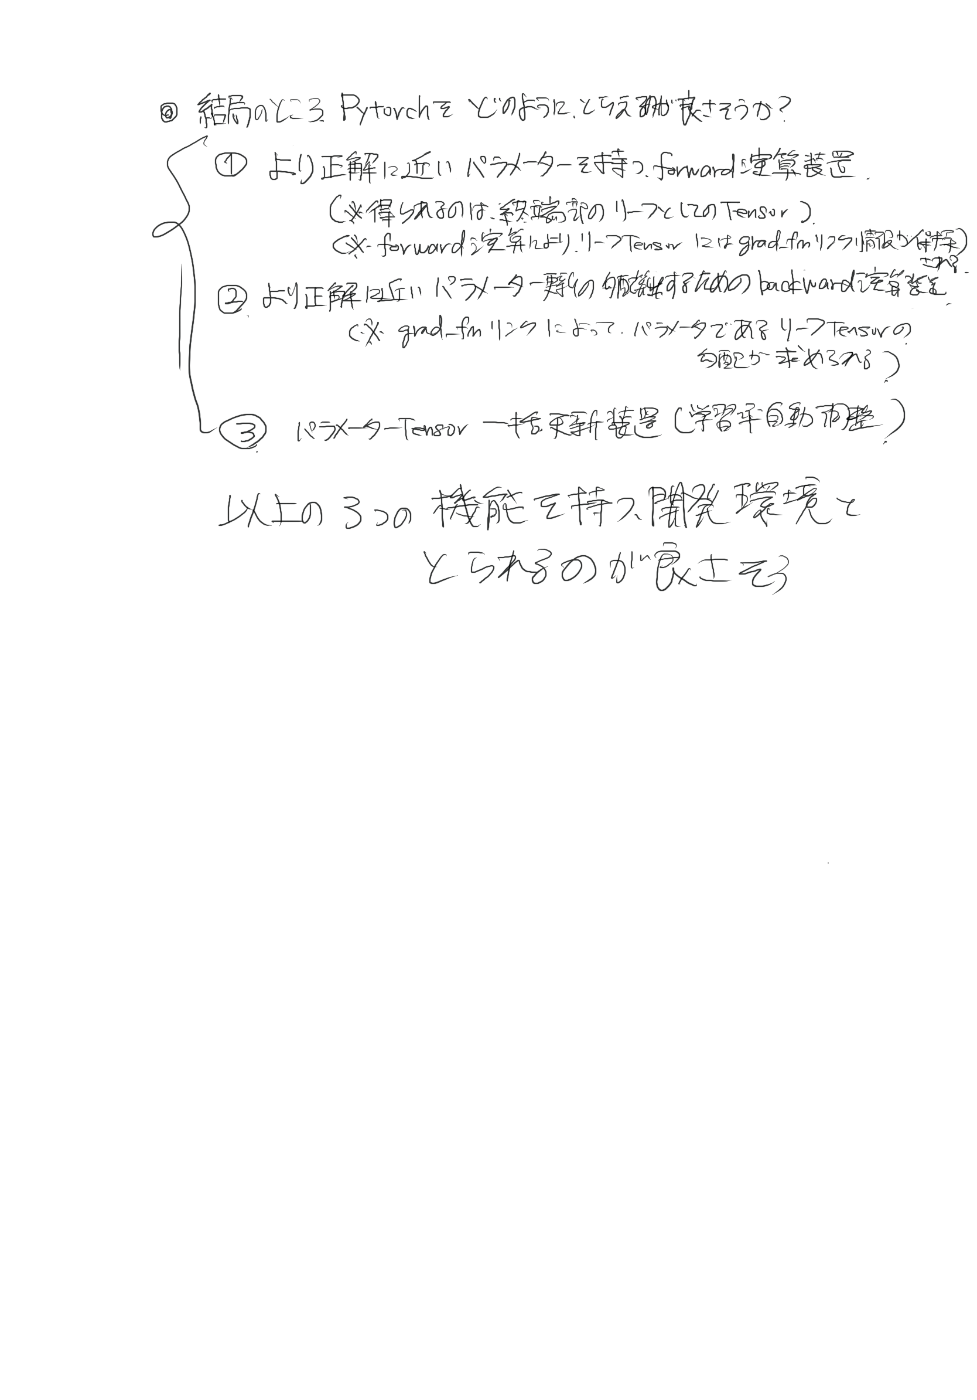 ◎ 結局のところ Pytorchを どのように、とらえるのが良さそうか?
① より正解に近い パラメーターを持つ、forward演算装置.
(※得られるのは、終端部のリーフとしてのTensor)
(※ forward演算により、リーフTensor には grad_fnリンク情報が保持
される.
② より正解に近い パラメーター 勾配 するためのbackward演算装置
(※ grad_fnリンクによって、パラメータである リーフTensorの
勾配が求められる)
③ パラメーターTensor 一括更新装置 (学習率自動調整)
以上の 3つの 機能を持つ、開発環境と
とられるのが良さそう